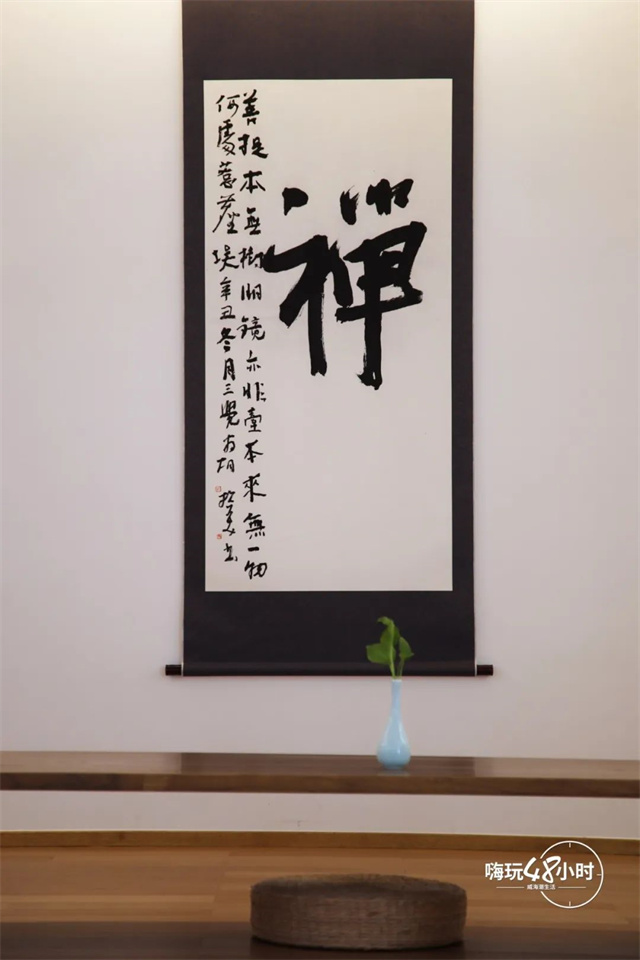 禪
菩提本無樹明鏡亦非臺本來無一物
何處惹塵埃辛丑冬月三覺
嗨玩48小时
威海潮生活